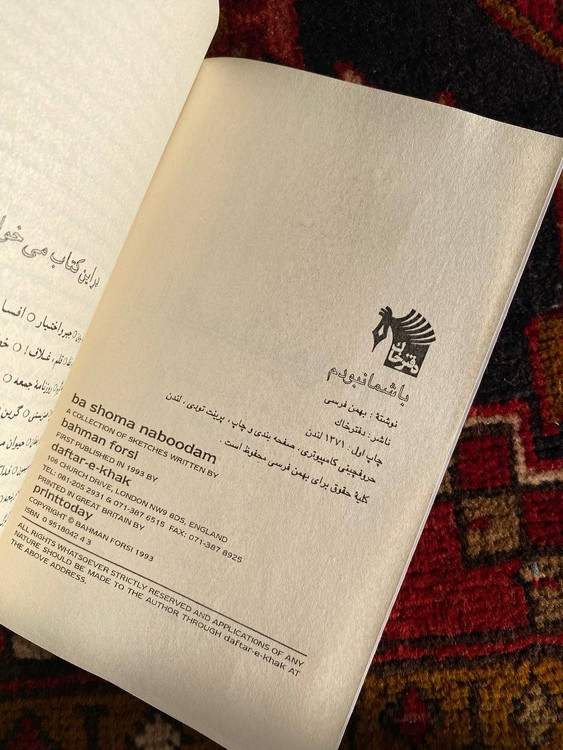 براین کتاب می خوا
جبر و اختیار ○ افسا
قلم، غلاف! ○ خص
روزنامهٔ جمعه ○
○ گرین
حیوان
دفترخاک
با شما نبودم
نوشتهٔ : بهمن فرسی
ناشر: دفترخاک
چاپ اول، ۱۳۷۱ لندن
حروفچینی کامپیوتری، صفحه بندی و چاپ، پرینت تودی، لندن
کلیهٔ حقوق برای بهمن فرسی محفوظ است .
ba shoma naboodam
A COLLECTION OF SKETCHES WRITTEN BY
bahman forsi
FIRST PUBLISHED IN 1993 BY
daftar-e-khak
106 CHURCH DRIVE, LONDON NW9 8DS, ENGLAND
TEL: 081-205 2931 & 071-387 6515 FAX: 071-387 8925
PRINTED IN GREAT BRITAIN BY
printtoday
COPYRIGHT © BAHMAN FORSI 1993
ISBN 0 9518042 4 3
ALL RIGHTS WHATSOEVER STRICTLY RESERVED AND APPLICATIONS OF ANY
NATURE SHOULD BE MADE TO THE AUTHOR THROUGH daftar-e-khak AT
THE ABOVE ADDRESS.